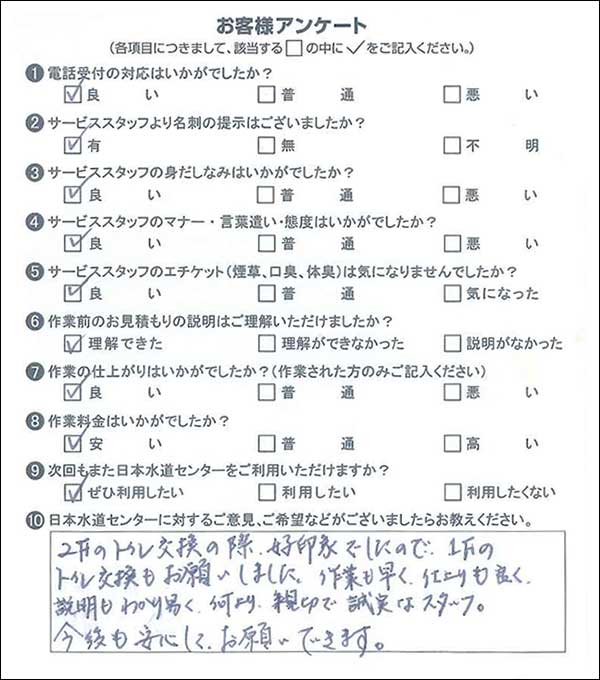 お客様アンケート
(各項目につきまして、該当する□の中に✓をご記入ください。)
❶電話受付の対応はいかがでしたか？
☑良い □普通 □悪い
❷サービススタッフより名刺の提示はございましたか？
☑有 □無 □不明
❸サービススタッフの身だしなみはいかがでしたか？
☑良い □普通 □悪い
❹サービススタッフのマナー・言葉遣い・態度はいかがでしたか？
☑良い □普通 □悪い
❺サービススタッフのエチケット(煙草、口臭、体臭)は気になりませんでしたか？
☑良い □普通 □気になった
❻作業前のお見積もりの説明はご理解いただけましたか？
☑理解できた □理解ができなかった □説明がなかった
❼作業の仕上がりはいかがでしたか？(作業された方のみご記入ください)
☑良い □普通 □悪い
❽作業料金はいかがでしたか？
☑安い □普通 □高い
❾次回もまた日本水道センターをご利用いただけますか？
☑ぜひ利用したい □利用したい □利用したくない
❿日本水道センターに対するご意見、ご希望などがございましたらお教えください。
2Fのトイレ交換の際、好印象でしたので、1Fの
トイレ交換もお願いしました。作業も早く、仕上りも良く、
説明もわかり易く、何より、親切で誠実なスタッフ。
今後も安心して、お願いできます。